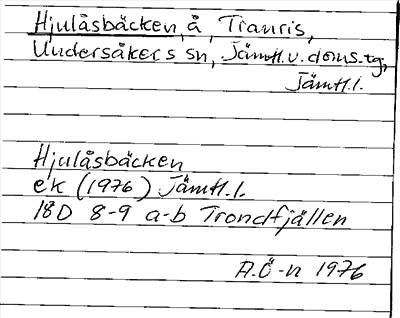 Hjulåsbäcken, å, Tranris,
Undersåkers sn, Jämtl.v.doms.tg,
Jämtl.l.
Hjulåsbäcken
ek (1976) Jämtl.l.
18D 8-9 a-b Trondfjällen
A.Ö-n 1976